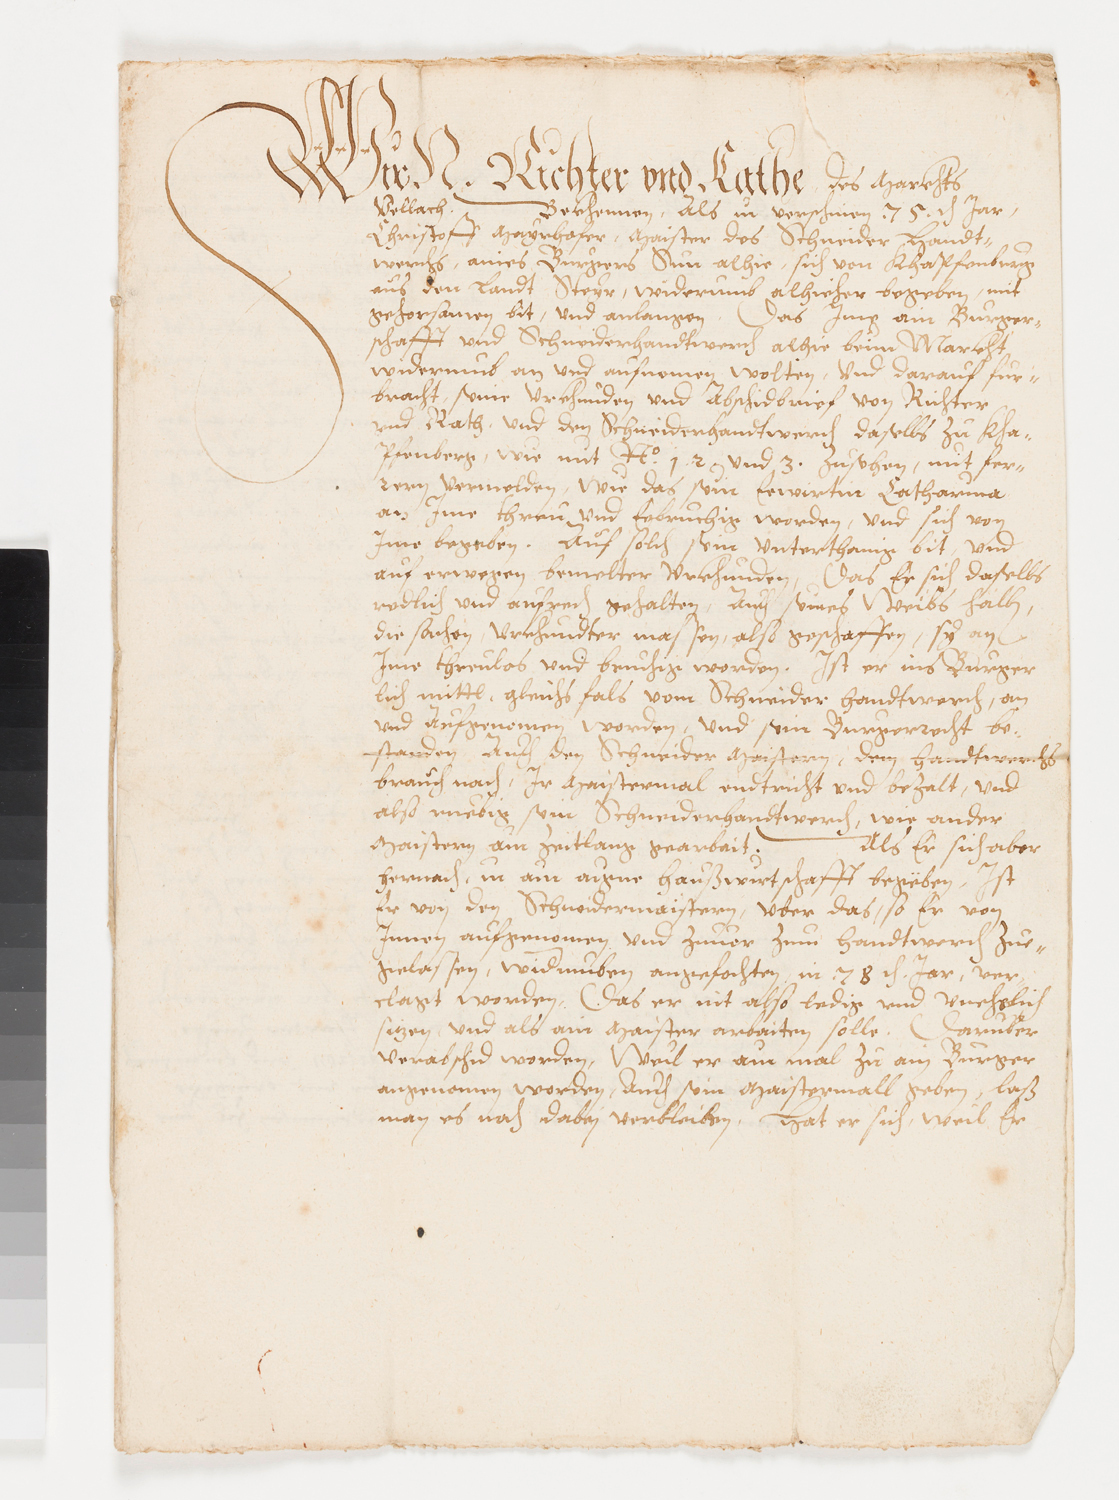 Wir N. Richter vnd Rathe des Marckhts
Vellach. Bekhennen, Als in verschinen .75. ch Jar,
Christoff Mayrhofer, Maister des Schneider Handt=
werchs, aines Burgers Sun alhie, sich von Khapfenberg
aus den Landt Steyr, widerumb alhieher begeben, mit
gehorsamen bit, vnd anlangen. Das Ime ain Burger=
schafft vnd Schneiderhandtwerch alhie beim Marckht
widerumb an vnd aufnemen wolten, Vnd darauf fur=
bracht, seine Vrkhunden vnd Abschidbrief von Richter
vnd Rath, vnd den Schneiderhandtwerch daselbs zu Kha=
pfenberg, wie mit No. 1. 2. vnd 3. zusehen, mit fer=
rern vermelden, Wie das sein Eewirtin Catharina
an Ime threu vnd Eebruchig worden, vnd sich von
Ime begeben. Auf solch sein vnterthanig bit, vnd
auf erwegen bemelter Vrkhunden, Das Er sich daselbs
redlich vnd aufrech gehalten, Auch seines Weibs halb,
die sachen, Vrkhundter massen, also geschaffen, sy an
Ime threulos vnd bruchig worden. Ist er ins Burger
lich mittl, gleichs fals vom Schneider Handtwerch, an
vnd Aufgenomen worden, Vnd sein Burgerrecht be=
standen, Auch den Schneider Maistern, dem Handtwerchs
brauch nach, Ir Maistermal endtricht vnd bezalt, Vnd
also ruebig sein Schneiderhandtwerch, wie ander
Maistern ain zeitlang gearbait. Als Er sich aber
hernach, in ain aigne Haußwirtschafft begeben, Ist
Er von den Schneidermaistern, vber das, so Er von
Innen aufgenomen vnd zuuor zum Handtwerch zue=
gelassen, widrumben angefochten, in .78. ch. Jar, ver=
clagt worden, Das er nit also ledig vnd vnehelich
sitzen, vnd als ain Maister arbaiten solle. Daruber
verabschid worden, Weil er ain mal zu ain Burger
angenomen worden, Auch sein Maistermall geben, laß
man es noch dabey verbleiben. Hat er sich, weil Er